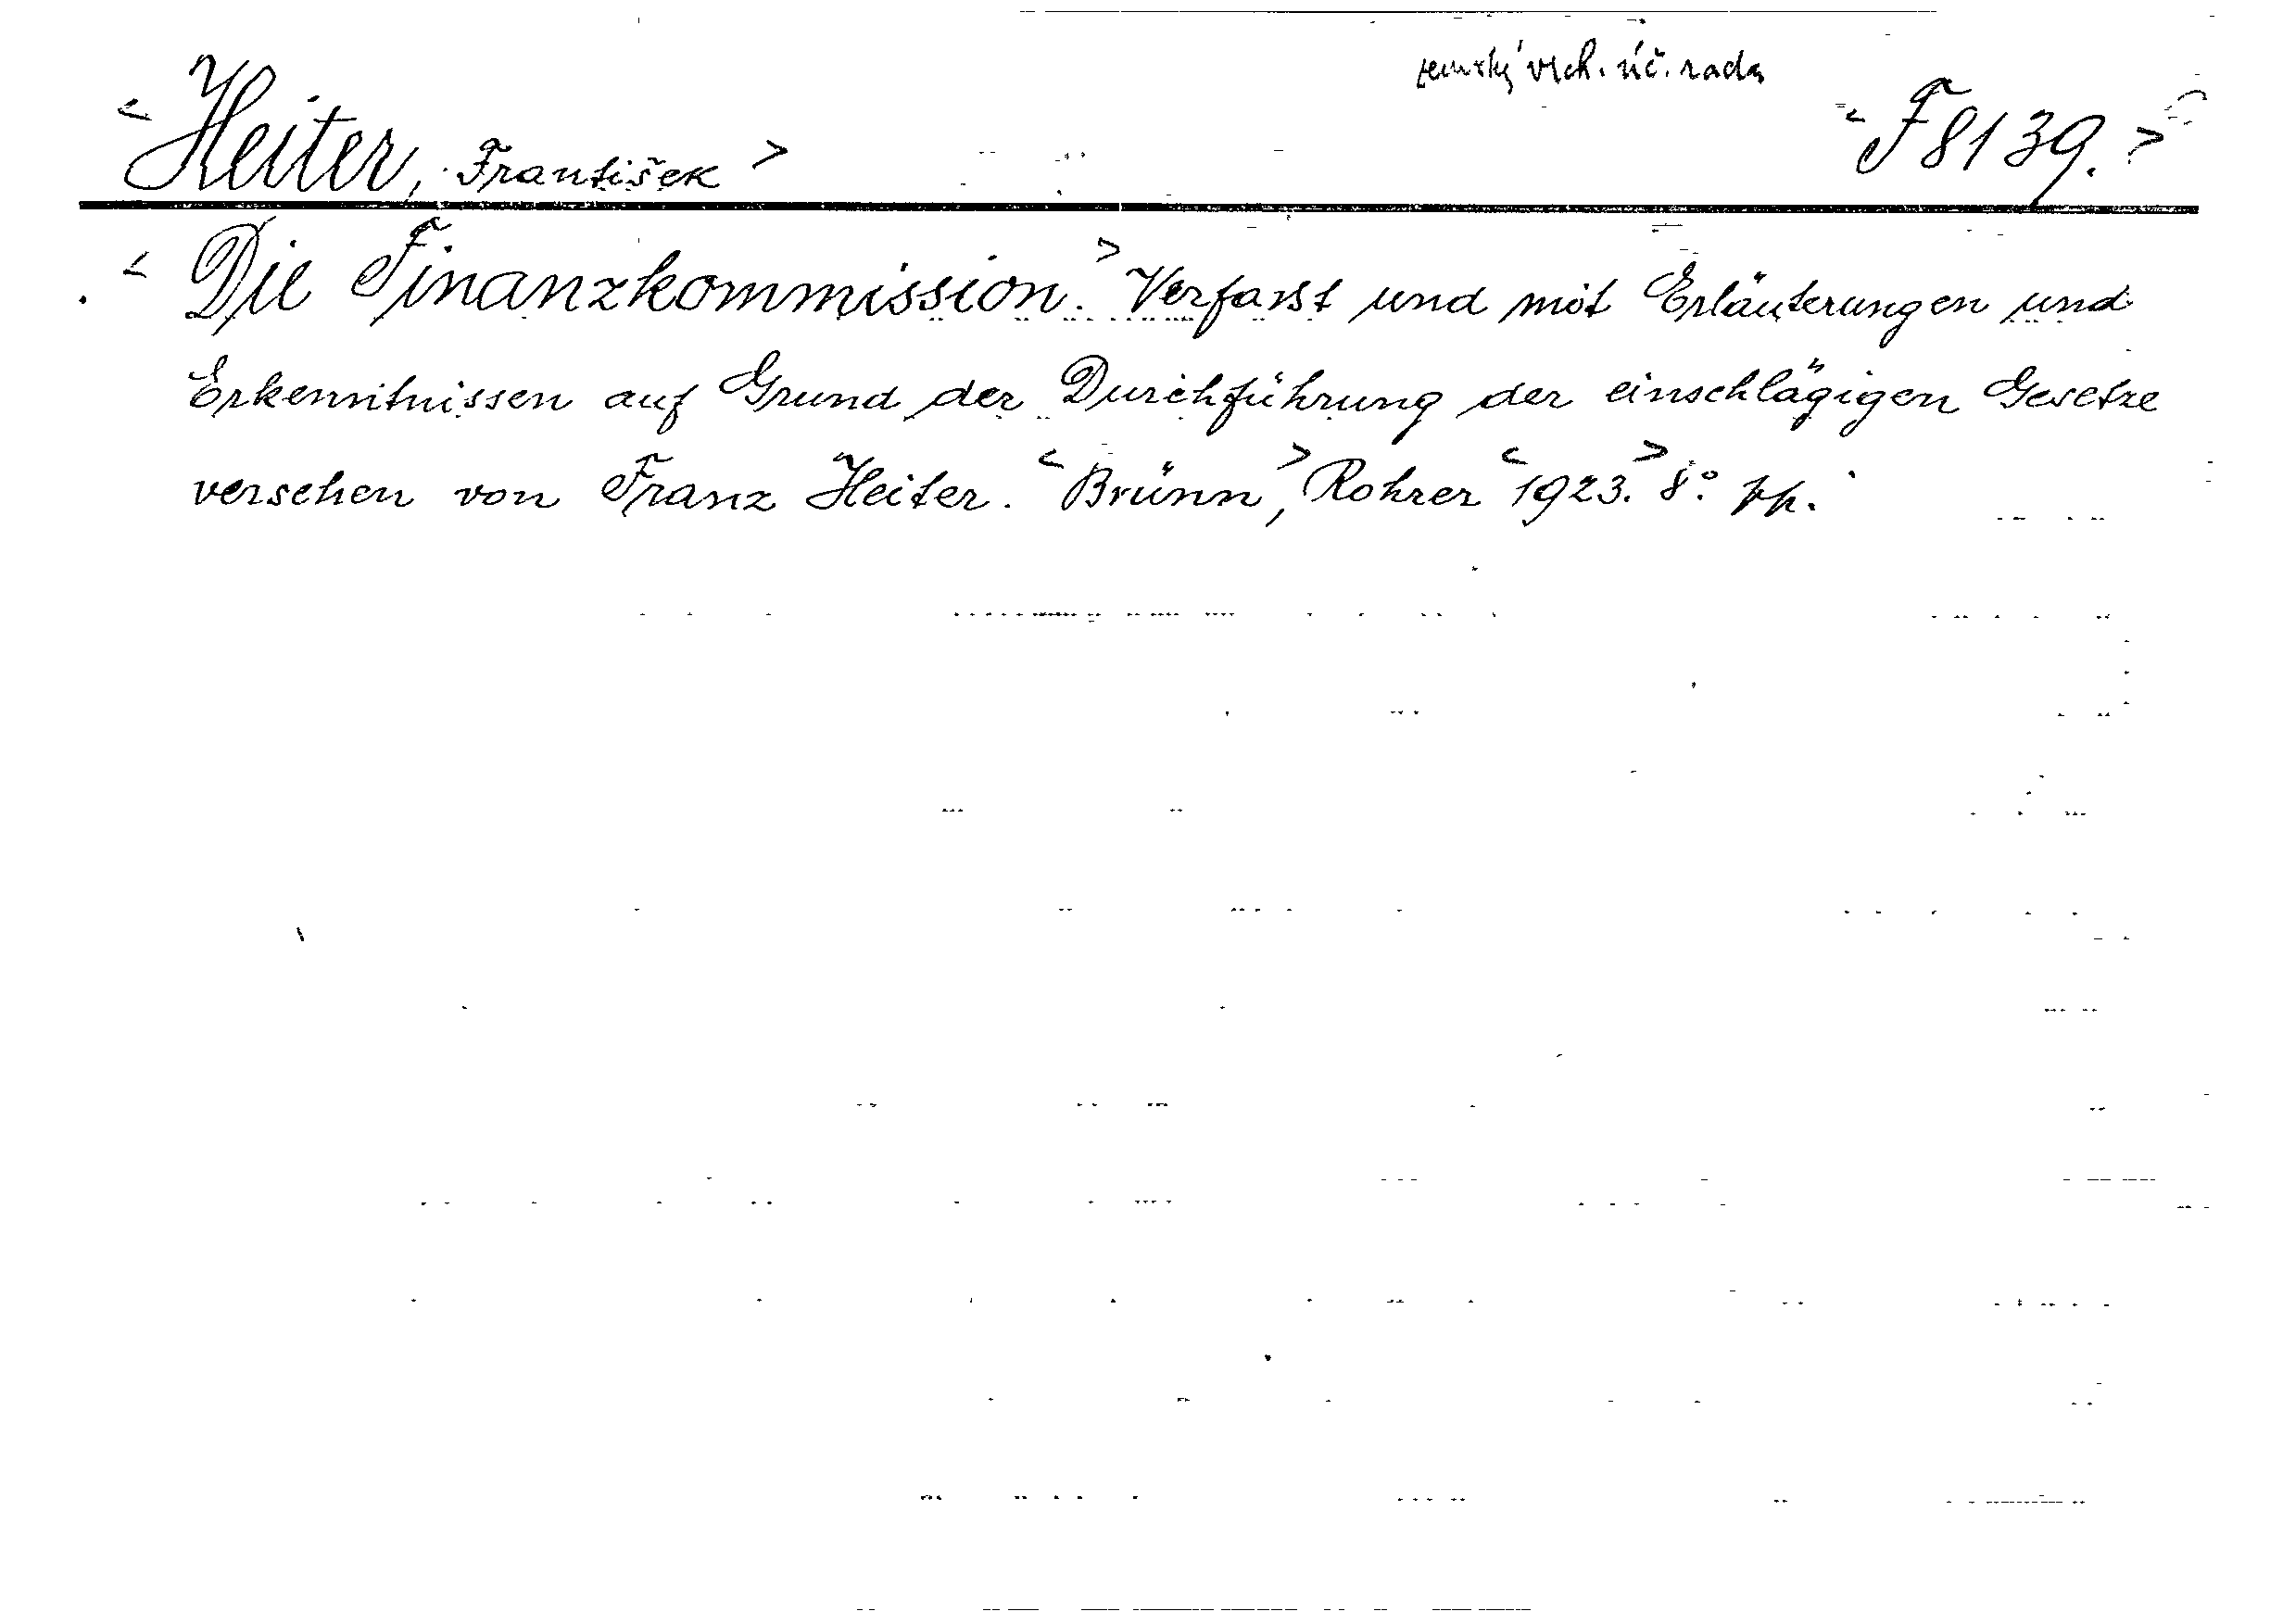 zemský vrch. úč. rada
< Heiter, František > < F 8139. >
< Die Finanzkommission. > Verfasst und mit Erläuterungen und
Erkenntnissen auf Grund der Durchführung der einschlägigen Gesetze
versehen von Franz Heiter. < Brünn, > Rohrer < 1923. > 8°. pp.